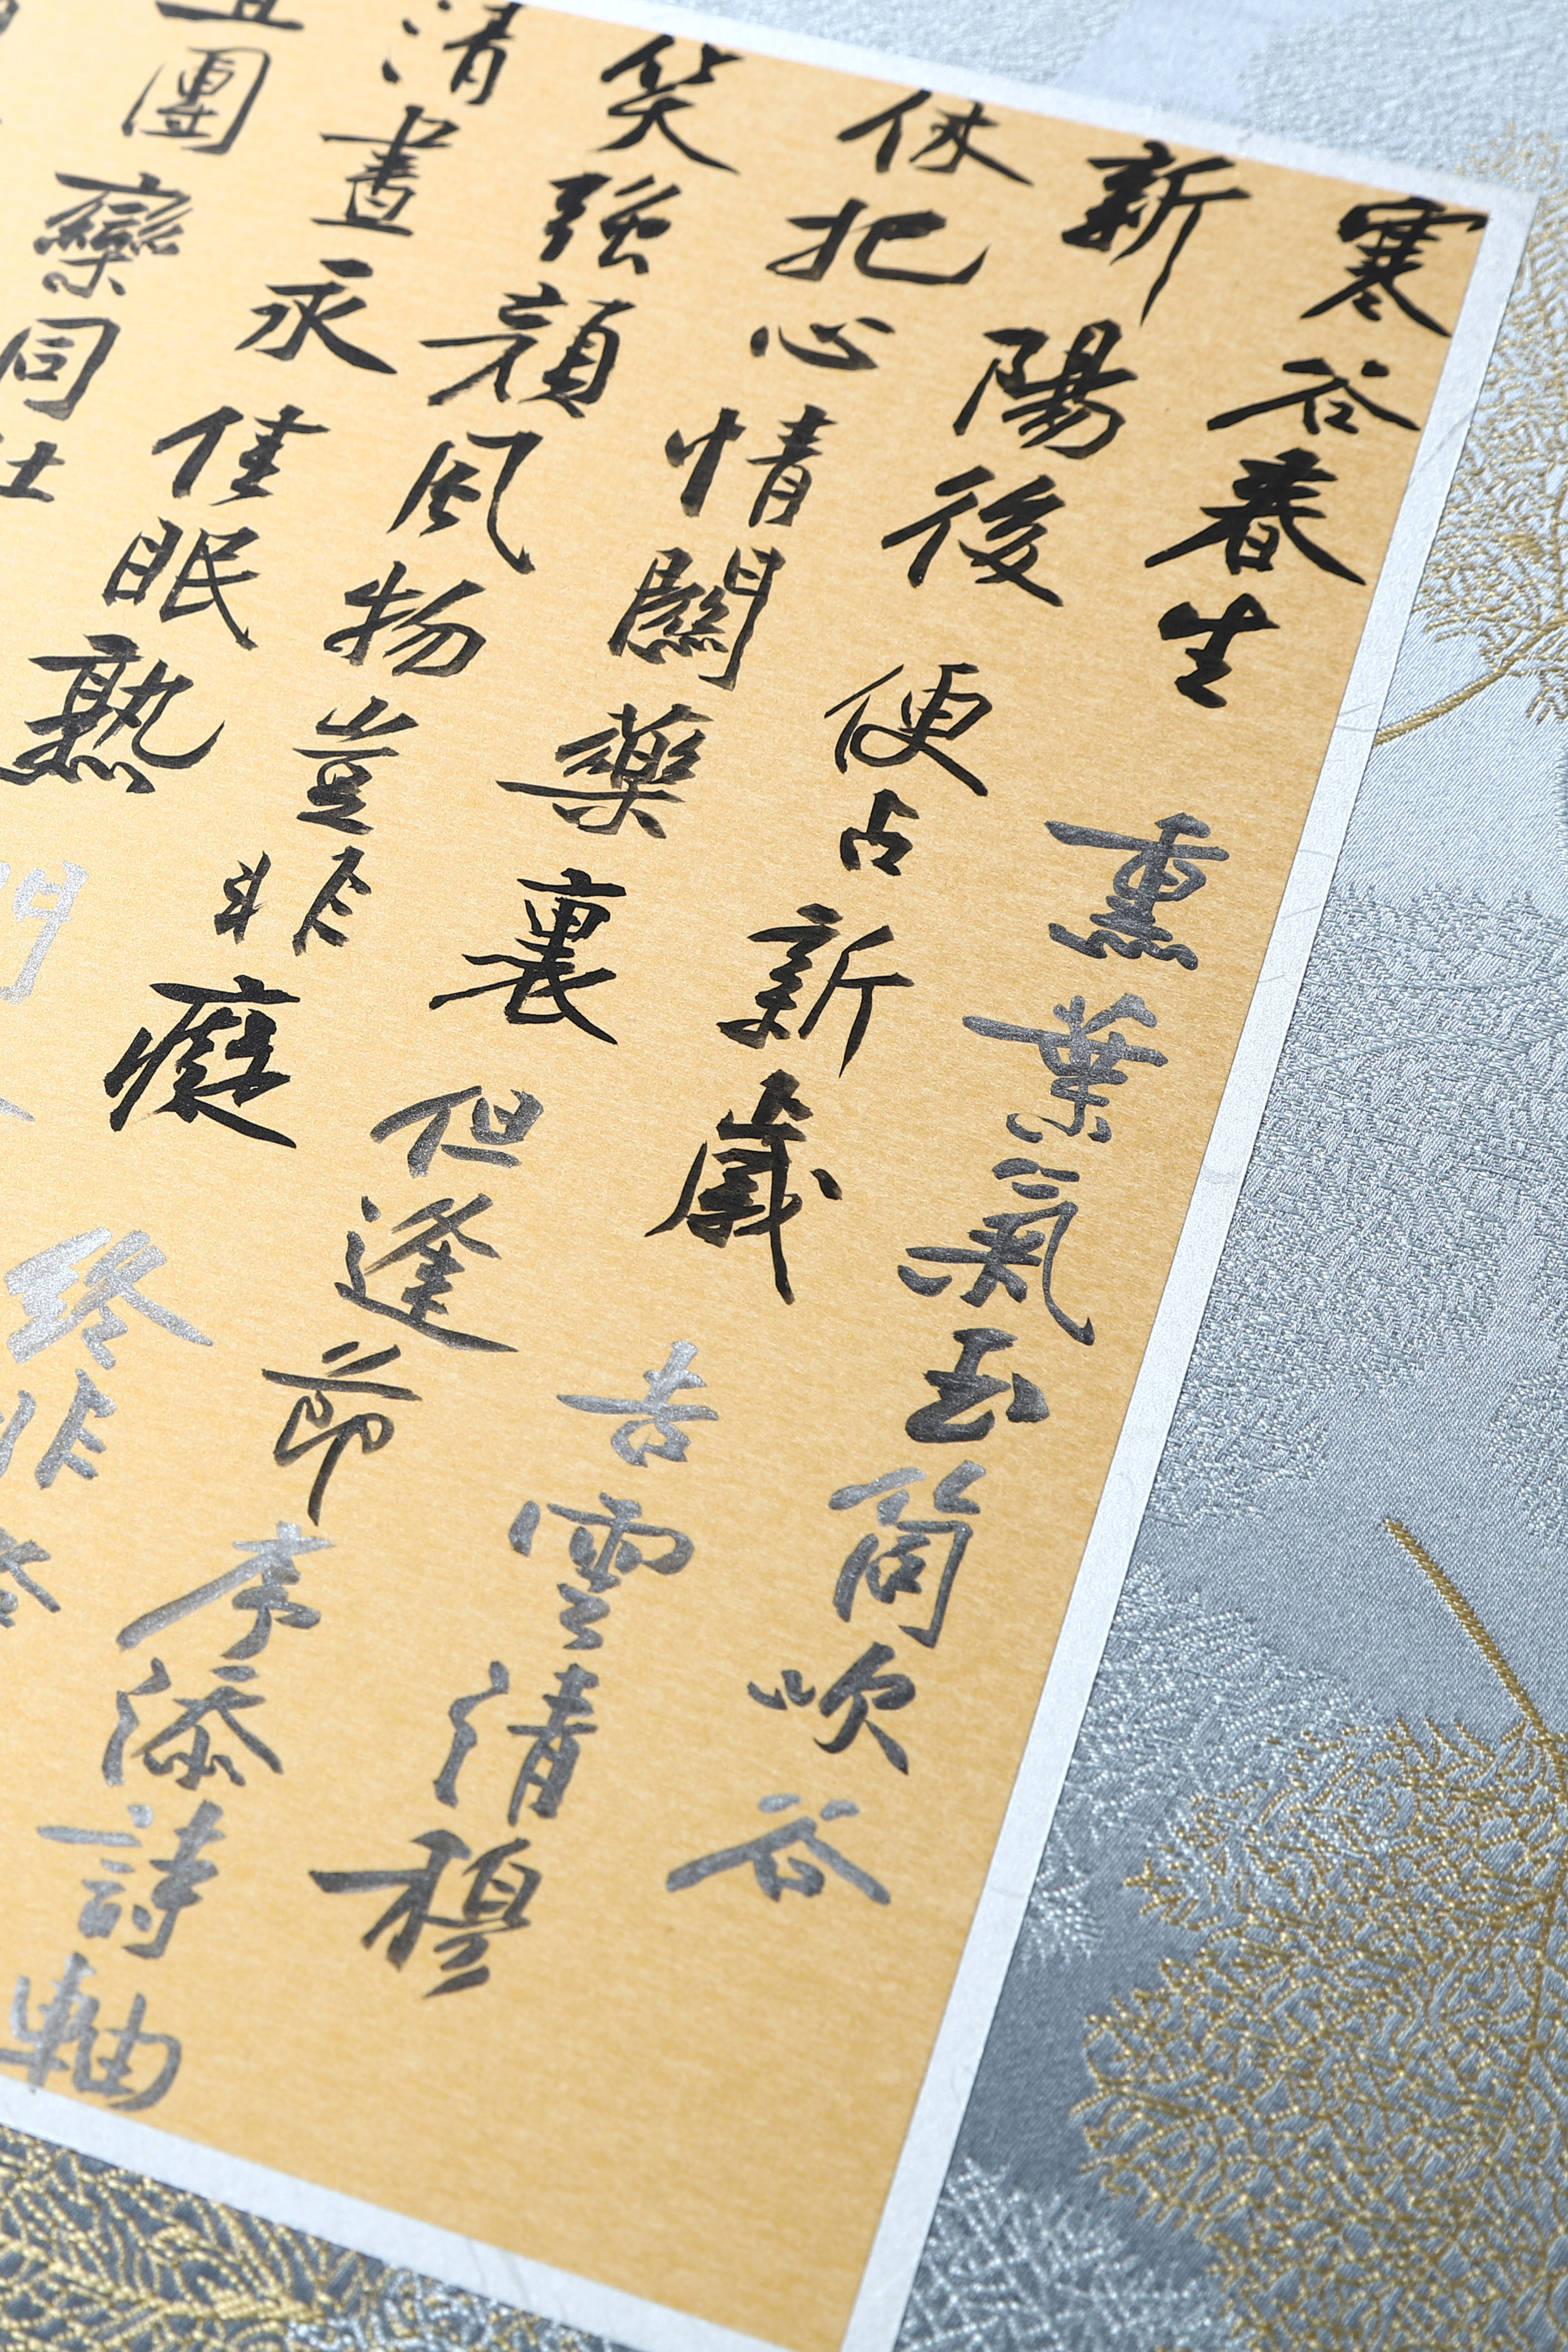 寒谷春生 熏葉氣玉筒吹谷
新陽後 便占新歲 吉雲清穆
休把心情關藥裏 但逢節序添詩軸
笑強顏風物豈非癡 終非
清晝永佳眠熟
團欒同